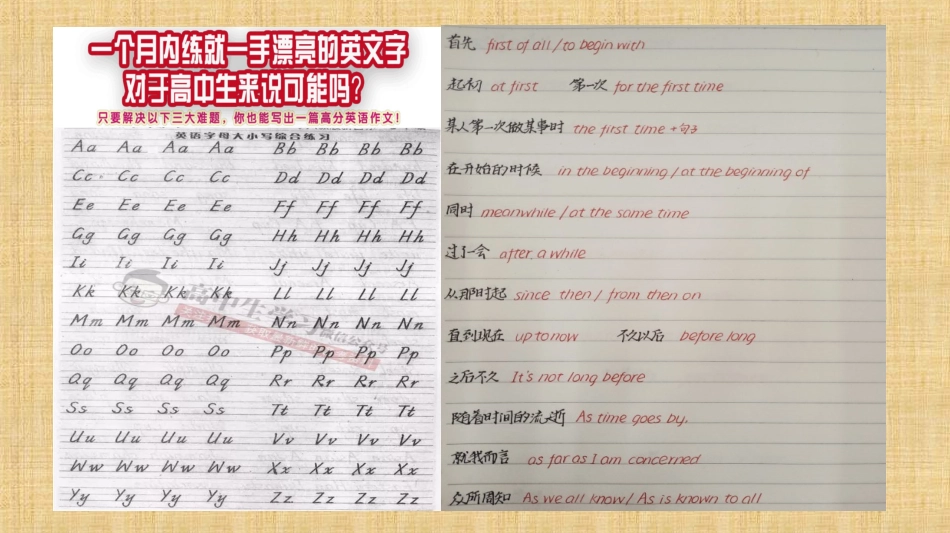 一个月内练就一手漂亮的英文字
对于高中生来说可能吗？
只要解决以下三大难题，你也能写出一篇高分英语作文！
英语字母大小写综合练习
Aa Aa Aa Aa Bb Bb Bb Bb
Cc Cc Cc Cc Dd Dd Dd Dd
Ee Ee Ee Ee Ff Ff Ff Ff
Gg Gg Gg Gg Hh Hh Hh Hh
Ii Ii Ii Ii Jj Jj Jj Jj
Kk Kk Kk Kk Ll Ll Ll Ll
Mm Mm Mm Mm Nn Nn Nn Nn
Oo Oo Oo Oo Pp Pp Pp Pp
Qq Qq Qq Qq Rr Rr Rr Rr
Ss Ss Ss Ss Tt Tt Tt Tt
Uu Uu Uu Uu Vv Vv Vv Vv
Ww Ww Ww Ww Xx Xx Xx Xx
Yy Yy Yy Yy Zz Zz Zz Zz
高中生学习
首先 first of all / to begin with
起初 at first 第一次 for the first time
某人第一次做某事时 the first time +句子
在开始的时候 in the beginning / at the beginning of
同时 meanwhile / at the same time
过了一会 after a while
从那时起 since then / from then on
直到现在 up to now 不久以后 before long
之后不久 It's not long before
随着时间的流逝 As time goes by.
就我而言 as far as I am concerned
众所周知 As we all know / As is known to all